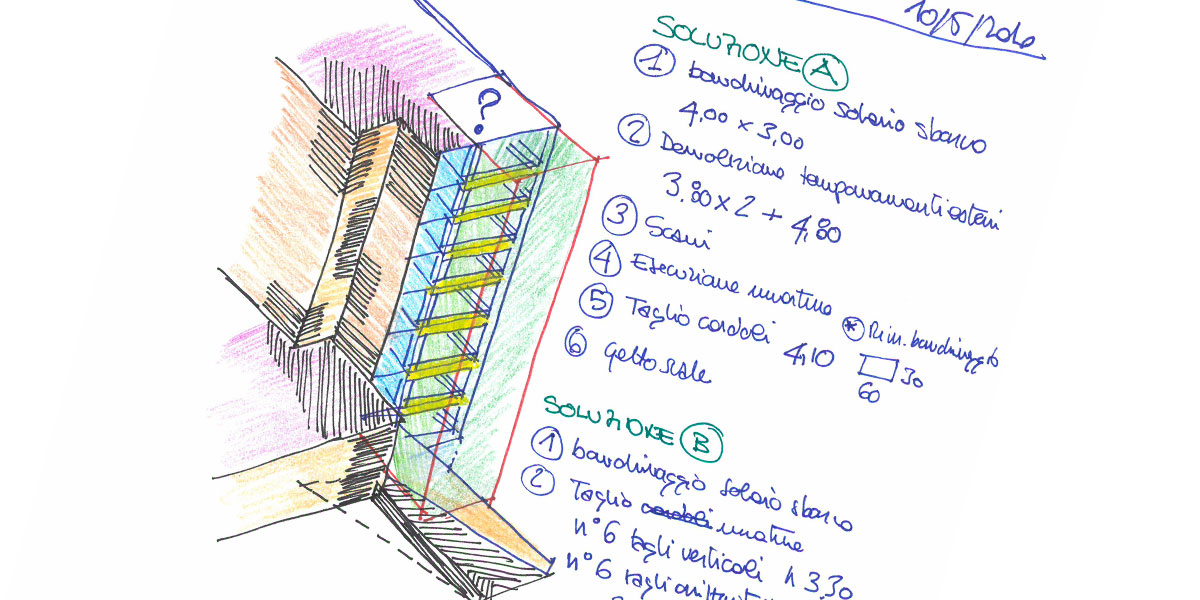 10/5/2010
?
SOLUZIONE A
1 banchinaggio solaio sbarco
4,00 x 3,00
2 Demolizione tamponamenti esterni
3.80 x 2 + 4,80
3 Scavi
4 Esecuzione muratura
5 Taglio cordoli 4,10
* Rim. banchinaggio
30
60
6 Getto scale
SOLUZIONE B
1 banchinaggio solaio sbarco
2 Taglio muratura
n°6 tagli verticali h 3,30
n°6 tagli